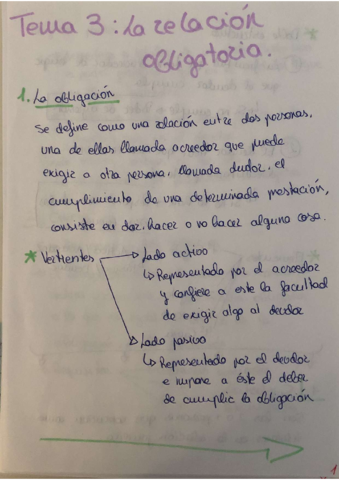 Tema 3: La relación
obligatoria.
1. La obligación
Se define como una relación entre dos personas,
una de ellas llamada acreedor que puede
exigir a otra persona, llamada deudor, el
cumplimiento de una determinada prestación,
consiste en dar, hacer o no hacer alguna cosa.
* Vertientes → Lado activo
↳ Representado por el acreedor
y confiere a este la facultad
de exigir algo al deudor
→ Lado pasivo
↳ Representado por el deudor
e impone a éste el deber
de cumplir la obligación
1